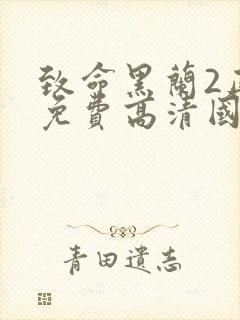 致命黑蘭2
免費高清國
青田遺志